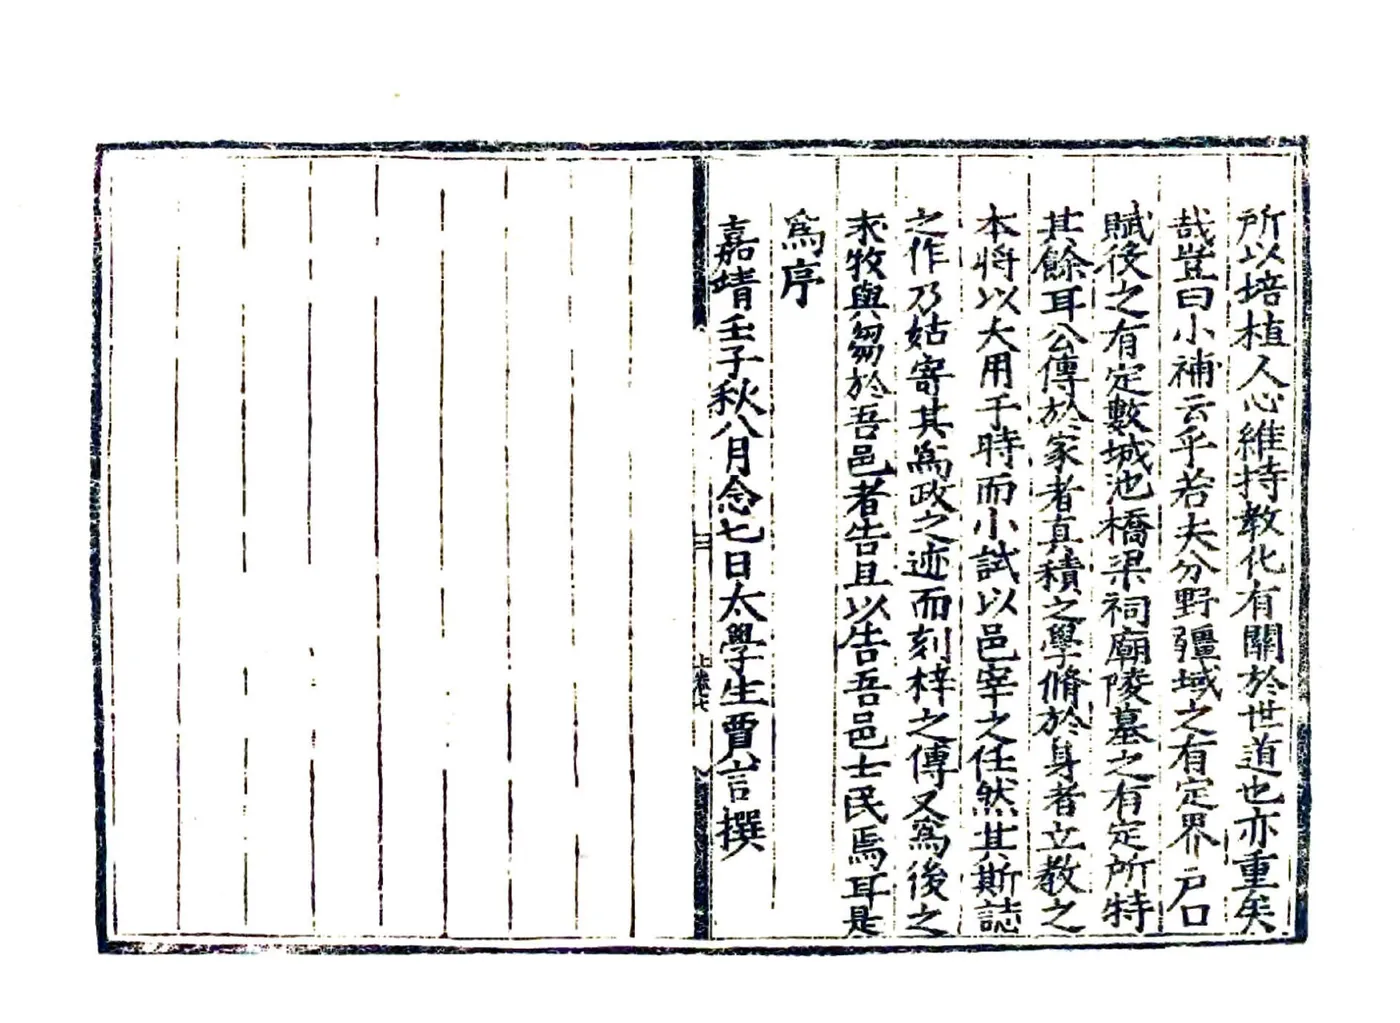 所以培植人心維持教化有關於世道也亦重矣
哉豈曰小補云乎若夫分野疆域之有定界户口
賦役之有定數城池橋梁祠廟陵墓之有定所特
其餘耳公傳於家者真積之學脩於身者立教之
本將以大用于時而小試以邑宰之任然其斯誌
之作乃姑寄其爲政之迹而刻梓之傳又爲後之
求牧與芻於吾邑者告且以告吾邑士民焉耳是
爲序
嘉靖壬子秋八月念七日太學生賈言撰
三
上卷七